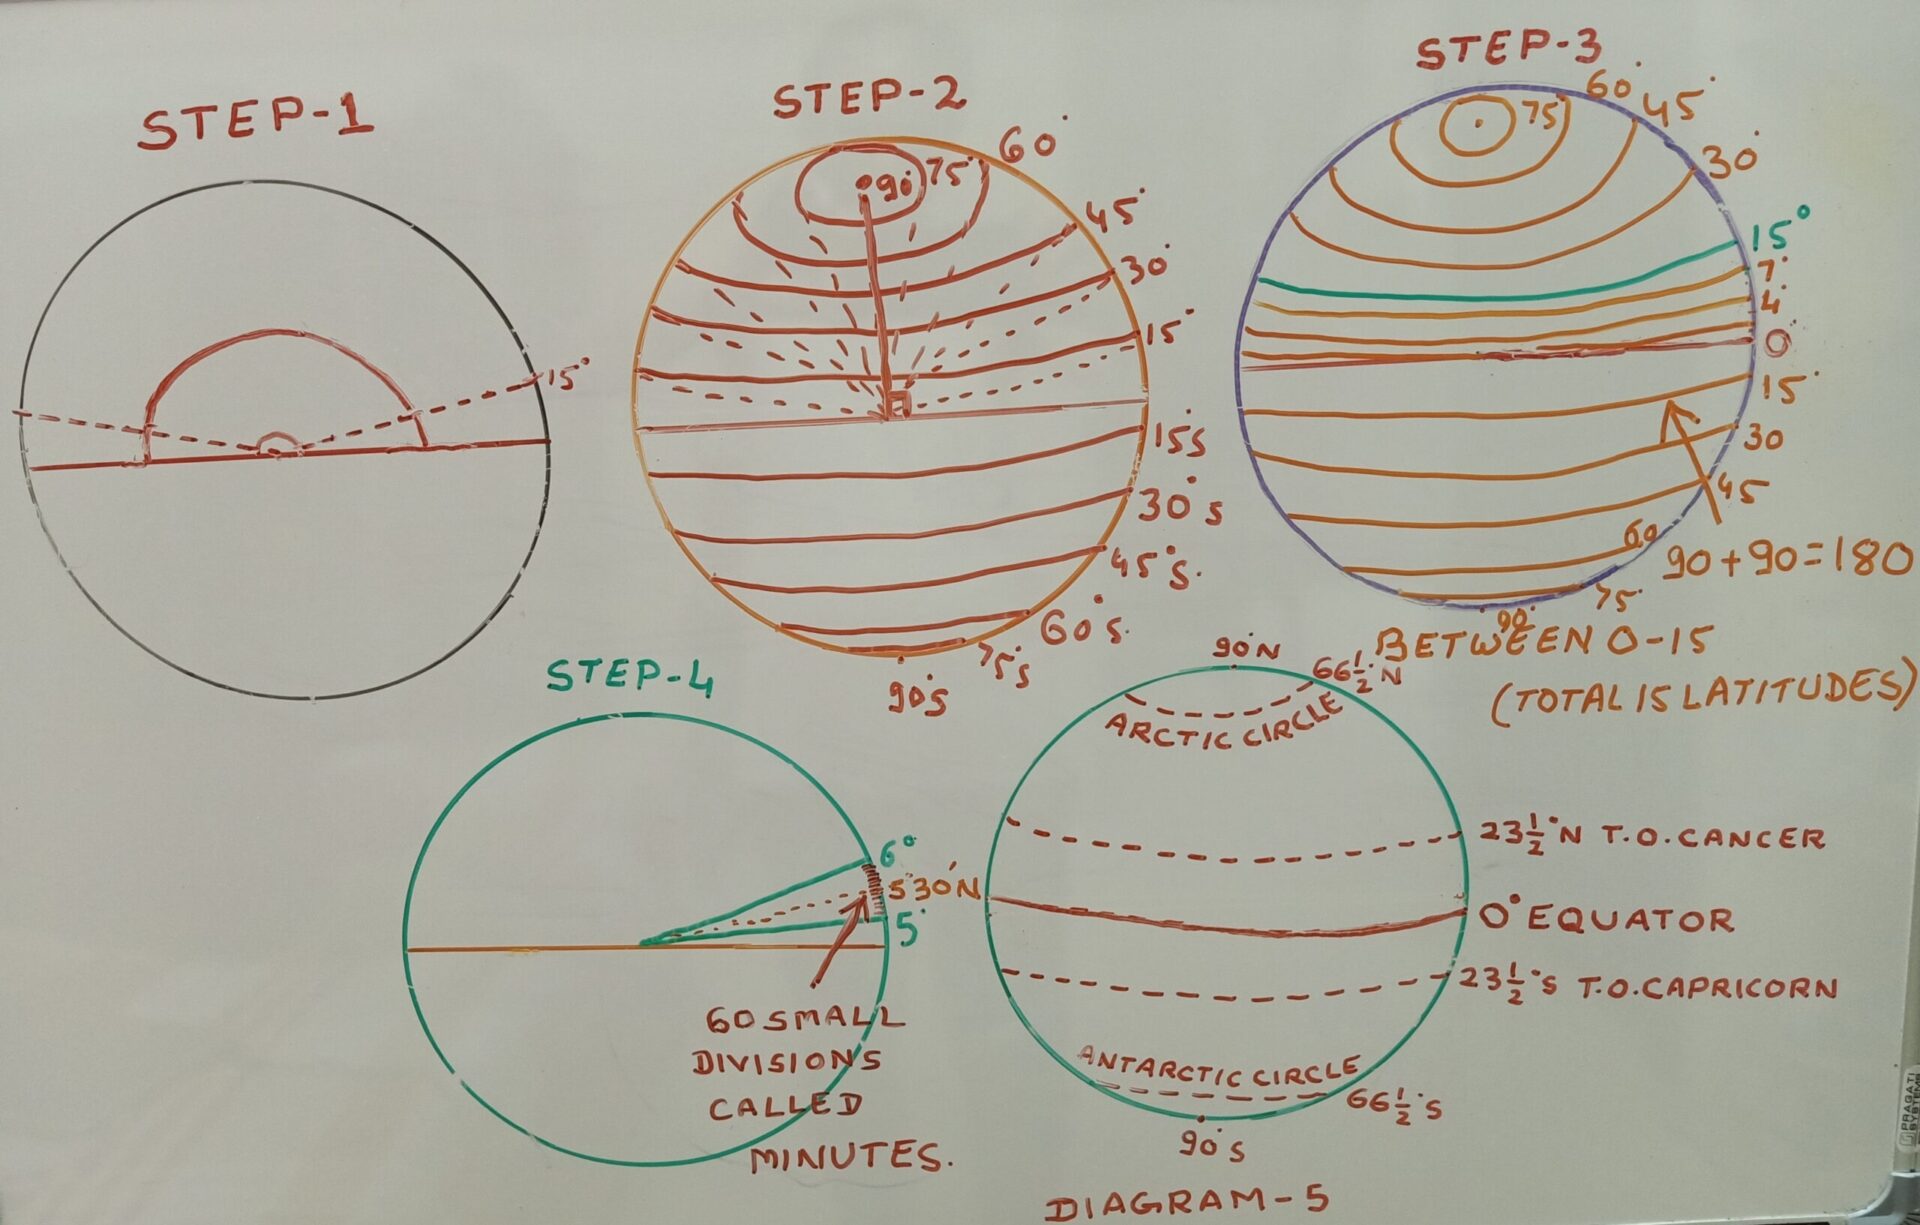 STEP-1
15°
STEP-2
60°
75°
90°
45°
30°
15°
15°S
30°S
45°S.
60°S.
75°S
90°S
STEP-3
60°
75
45°
30°
15°
7°
4°
0°
15°
30
45
60
75°
90°
90+90=180
BETWEEN 0-15
(TOTAL 15 LATITUDES)
STEP-4
6°
5°30'N
5°
60 SMALL
DIVISIONS
CALLED
MINUTES.
90°N
66 1/2°N
ARCTIC CIRCLE
23 1/2°N T.O.CANCER
0° EQUATOR
23 1/2°S T.O.CAPRICORN
ANTARCTIC CIRCLE
66 1/2°S
90°S
DIAGRAM-5
PRAGATI
SYSTEMS